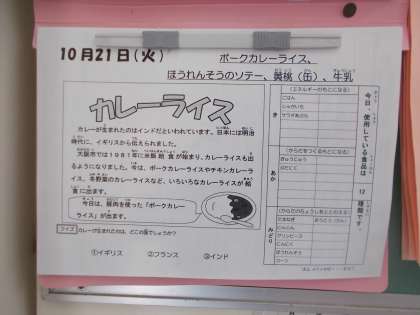 10月21日(火)
ポークカレーライス、
ほうれんそうのソテー、黄桃(缶)、牛乳
カレーライス
カレーが生まれたのはインドだといわれています。日本には明治
時代に、イギリスから伝えられました。
大阪市では1981年に米飯給食が始まり、カレーライスも出
るようになりました。今は、ポークカレーライスやチキンカレーラ
イス、冬野菜のカレーライスなど、いろいろなカレーライスが給
食に出ます。
今日は、豚肉を使った「ポークカレー
ライス」が出ます。
クイズ カレーが生まれたのは、どこの国でしょうか?
①イギリス ②フランス ③インド
今日、使用している食品は 12 種類です。
き
(エネルギーのもとになる)
ごはん
じゃがいも
サラダあぶら
あか
(からだをつくるもとになる)
ぎゅうにゅう
ぶたにく
みどり
(からだのちょうしをととのえる)
たまねぎ
にんじん
グリンピース
にんにく
ほうれんそう
コーン